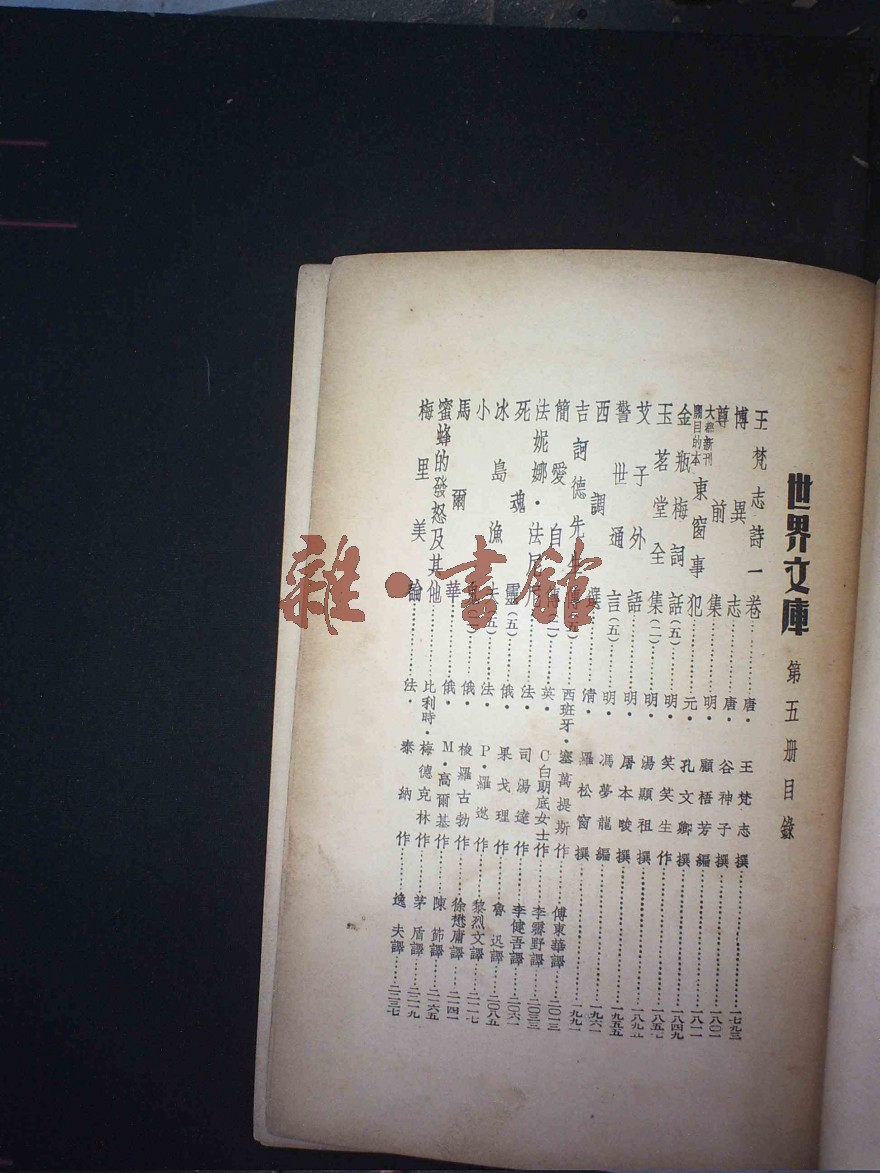 世界文庫 第五册目錄
王梵志詩一卷……唐・王梵志撰……一七九三
博異志……唐・谷神子撰……一八〇一
尊前集……明・顧梧芳編……一八一一
大都新刊關目的本東窗事犯……元・孔文卿撰……一八四九
金瓶梅詞話(五)……明・笑笑生作……一八五七
玉茗堂全集(二)……明・湯顯祖撰……一八九五
艾子外語……明・屠本畯撰……一九五五
警世通言(五)……明・馮夢龍編……一九六一
西調選……清・羅松窗撰……一九九一
吉訶德先生傳(五)……西班牙・塞萬提斯作……傅東華譯……二〇一三
簡愛自傳……英・C白朗底女士作……李霽野譯……二〇三三
法妮娜・法尼……法・司湯達作……李健吾譯……二〇六一
死魂靈(五)……俄・果戈理作……魯迅譯……二〇八五
冰島漁夫(五)……法・P・羅逖作……黎烈文譯……二一一七
小……俄・梭羅古勃作……徐懋庸譯……二一四一
馬爾華……俄・M・高爾基作……陳節譯……二一六五
蜜蜂的發怒及其他……比利時・梅德克林作……茅盾譯……二二一九
梅里美論……法・泰納作……逸夫譯……二二三七
雜・書館